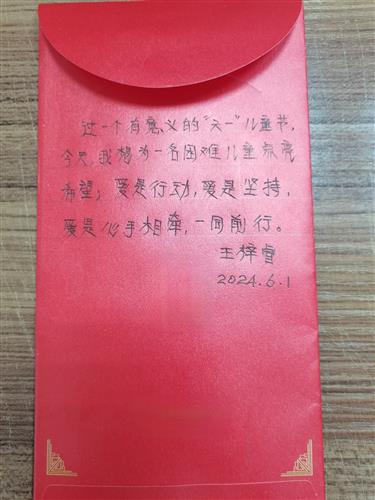 过一个有意义的“六一”儿童节,
今天,我想为一名困难儿童点亮
希望;爱是行动,爱是坚持,
爱是心手相牵,一同前行。
王梓睿
2024.6.1